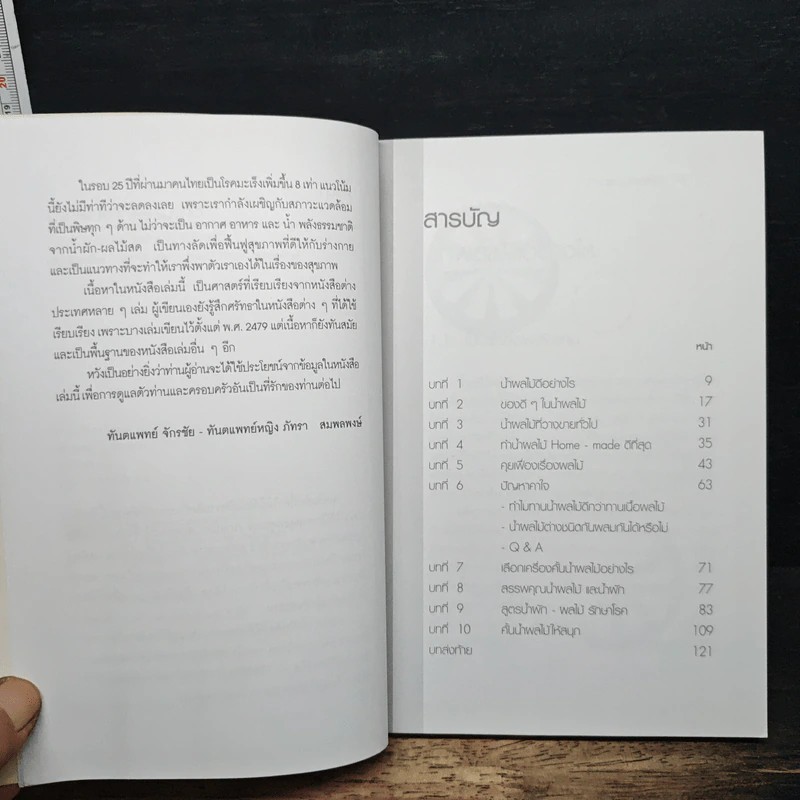 ในรอบ 25 ปีที่ผ่านมาคนไทยเป็นโรคมะเร็งเพิ่มขึ้น 8 เท่า แนวโน้ม
นี้ยังไม่มีท่าทีว่าจะลดลงเลย เพราะเรากำลังเผชิญกับสภาวะแวดล้อม
ที่เป็นพิษทุก ๆ ด้าน ไม่ว่าจะเป็น อากาศ อาหาร และ น้ำ พลังธรรมชาติ
จากน้ำผัก-ผลไม้สด เป็นทางลัดเพื่อฟื้นฟูสุขภาพที่ดีให้กับร่างกาย
และเป็นแนวทางที่จะทำให้เราพึ่งพาตัวเราเองได้ในเรื่องของสุขภาพ
เนื้อหาในหนังสือเล่มนี้ เป็นศาสตร์ที่เรียบเรียงจากหนังสือต่าง
ประเทศหลาย ๆ เล่ม ผู้เขียนเองยังรู้สึกศรัทธาในหนังสือต่าง ๆ ที่ได้ใช้
เรียบเรียง เพราะบางเล่มเขียนไว้ตั้งแต่ พ.ศ. 2479 แต่เนื้อหาก็ยังทันสมัย
และเป็นพื้นฐานของหนังสือเล่มอื่น ๆ อีก
หวังเป็นอย่างยิ่งว่าท่านผู้อ่านจะได้ใช้ประโยชน์จากข้อมูลในหนังสือ
เล่มนี้ เพื่อการดูแลตัวท่านและครอบครัวอันเป็นที่รักของท่านต่อไป
ทันตแพทย์ จักรชัย - ทันตแพทย์หญิง ภัทรา สมพลพงษ์
สารบัญ
หน้า
บทที่ 1 น้ำผลไม้ดีอย่างไร 9
บทที่ 2 ของดี ๆ ในน้ำผลไม้ 17
บทที่ 3 น้ำผลไม้ที่วางขายทั่วไป 31
บทที่ 4 ทำน้ำผลไม้ Home - made ดีที่สุด 35
บทที่ 5 คุยเฟื่องเรื่องผลไม้ 43
บทที่ 6 ปัญหาคาใจ 63
- ทำไมทานน้ำผลไม้ดีกว่าทานเนื้อผลไม้
- น้ำผลไม้ต่างชนิดกันผสมกันได้หรือไม่
- Q & A
บทที่ 7 เลือกเครื่องคั้นน้ำผลไม้อย่างไร 71
บทที่ 8 สรรพคุณน้ำผลไม้ และน้ำผัก 77
บทที่ 9 สูตรน้ำผัก - ผลไม้ รักษาโรค 83
บทที่ 10 คั้นน้ำผลไม้ให้สนุก 109
บทส่งท้าย 121
20
19